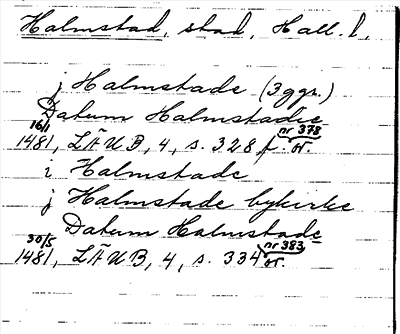 Halmstad, stad, Hall. l.
j Halmstade (3 ggr.)
Datum Halmstadie
16/1 nr 378
1481, LÄUB, 4, s. 328 f. or.
i Halmstade
j Halmstade bykirke
Datum Halmstade
30/5 nr 383
1481, LÄUB, 4, s. 334 or.